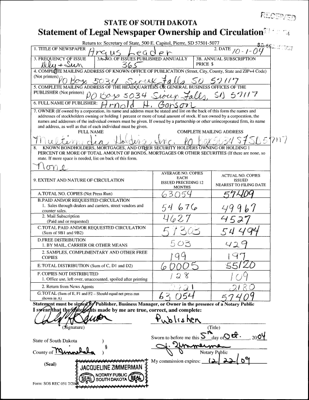 RECEIVED
STATE OF SOUTH DAKOTA
Statement of Legal Newspaper Ownership and Circulation
Return to: Secretary of State, 500 E. Capitol, Pierre, SD 57501-5077
1. TITLE OF NEWSPAPER Argus Leader 2. DATE 10-1-04
3. FREQUENCY OF ISSUE 3A. NO. OF ISSUES PUBLISHED ANNUALLY 3B. ANNUAL SUBSCRIPTION
365 PRICE $
4. COMPLETE MAILING ADDRESS OF KNOWN OFFICE OF PUBLICATION (Street, City, County, State and ZIP+4 Code)
(Not printers) PO Box 5034 Sioux Falls SD 57117
5. COMPLETE MAILING ADDRESS OF THE HEADQUARTERS OR GENERAL BUSINESS OFFICES OF THE
PUBLISHER (Not printers) PO Box 5034 Sioux Falls, SD 57117
6. FULL NAME OF PUBLISHER: Arnold H. Garson
7. OWNER (If owned by a corporation, its name and address must be stated and list on the back of this form the names and
addresses of stockholders owning or holding 1 percent or more of total amount of stock. If not owned by a corporation, the
names and addresses of the individual owners must be given. If owned by a partnership or other unincorporated firm, its name
and address, as well as that of each individual must be given.
FULL NAME COMPLETE MAILING ADDRESS
8. KNOWN BONDHOLDERS, MORTGAGES, AND OTHER SECURITY HOLDERS OWNING OR HOLDING 1
PERCENT OR MORE OF TOTAL AMOUNT OF BONDS, MORTGAGES OR OTHER SECURITIES (If there are none, so
state. If more space is needed, list on back of this form.
None
9. EXTENT AND NATURE OF CIRCULATION
AVERAGE NO. COPIES EACH ISSUED PRECEDING 12 MONTHS
ACTUAL NO. COPIES ISSUED NEAREST TO FILING DATE
A. TOTAL NO. COPIES (Net Press Run) 63054 57409
B. PAID AND/OR REQUESTED CIRCULATION
1. Sales through dealers and carriers, street vendors and counter sales. 54676 49967
2. Mail Subscription (Paid and or requested) 4627 4527
C. TOTAL PAID AND/OR REQUESTED CIRCULATION (Sum of 9B1 and 9B2) 59303 54494
D. FREE DISTRIBUTION
1. BY MAIL, CARRIER OR OTHER MEANS 503 429
2. SAMPLES, COMPLIMENTARY AND OTHER FREE COPIES 199 197
E. TOTAL DISTRIBUTION (Sum of C, D1 and D2) 60005 55120
F. COPIES NOT DISTRIBUTED
1. Office use, left over, unaccounted, spoiled after printing 128 109
2. Return from News Agents 2180
G. TOTAL (Sum of E, F1 and F2 - Should equal net press run shown in A) 63054 57409
Statement must be signed by Publisher, Business Manager, or Owner in the presence of a Notary Public
I swear that the statements made by me are true, correct, and complete:
Publisher
(Signature) (Title)
State of South Dakota ) Sworn to before me this 5th day of Oct. 2004
County of Minnehaha )
Notary Public
(Seal) My commission expires: 12/22/09
JACQUELINE ZIMMERMAN
NOTARY PUBLIC
SOUTH DAKOTA
SEAL SEAL